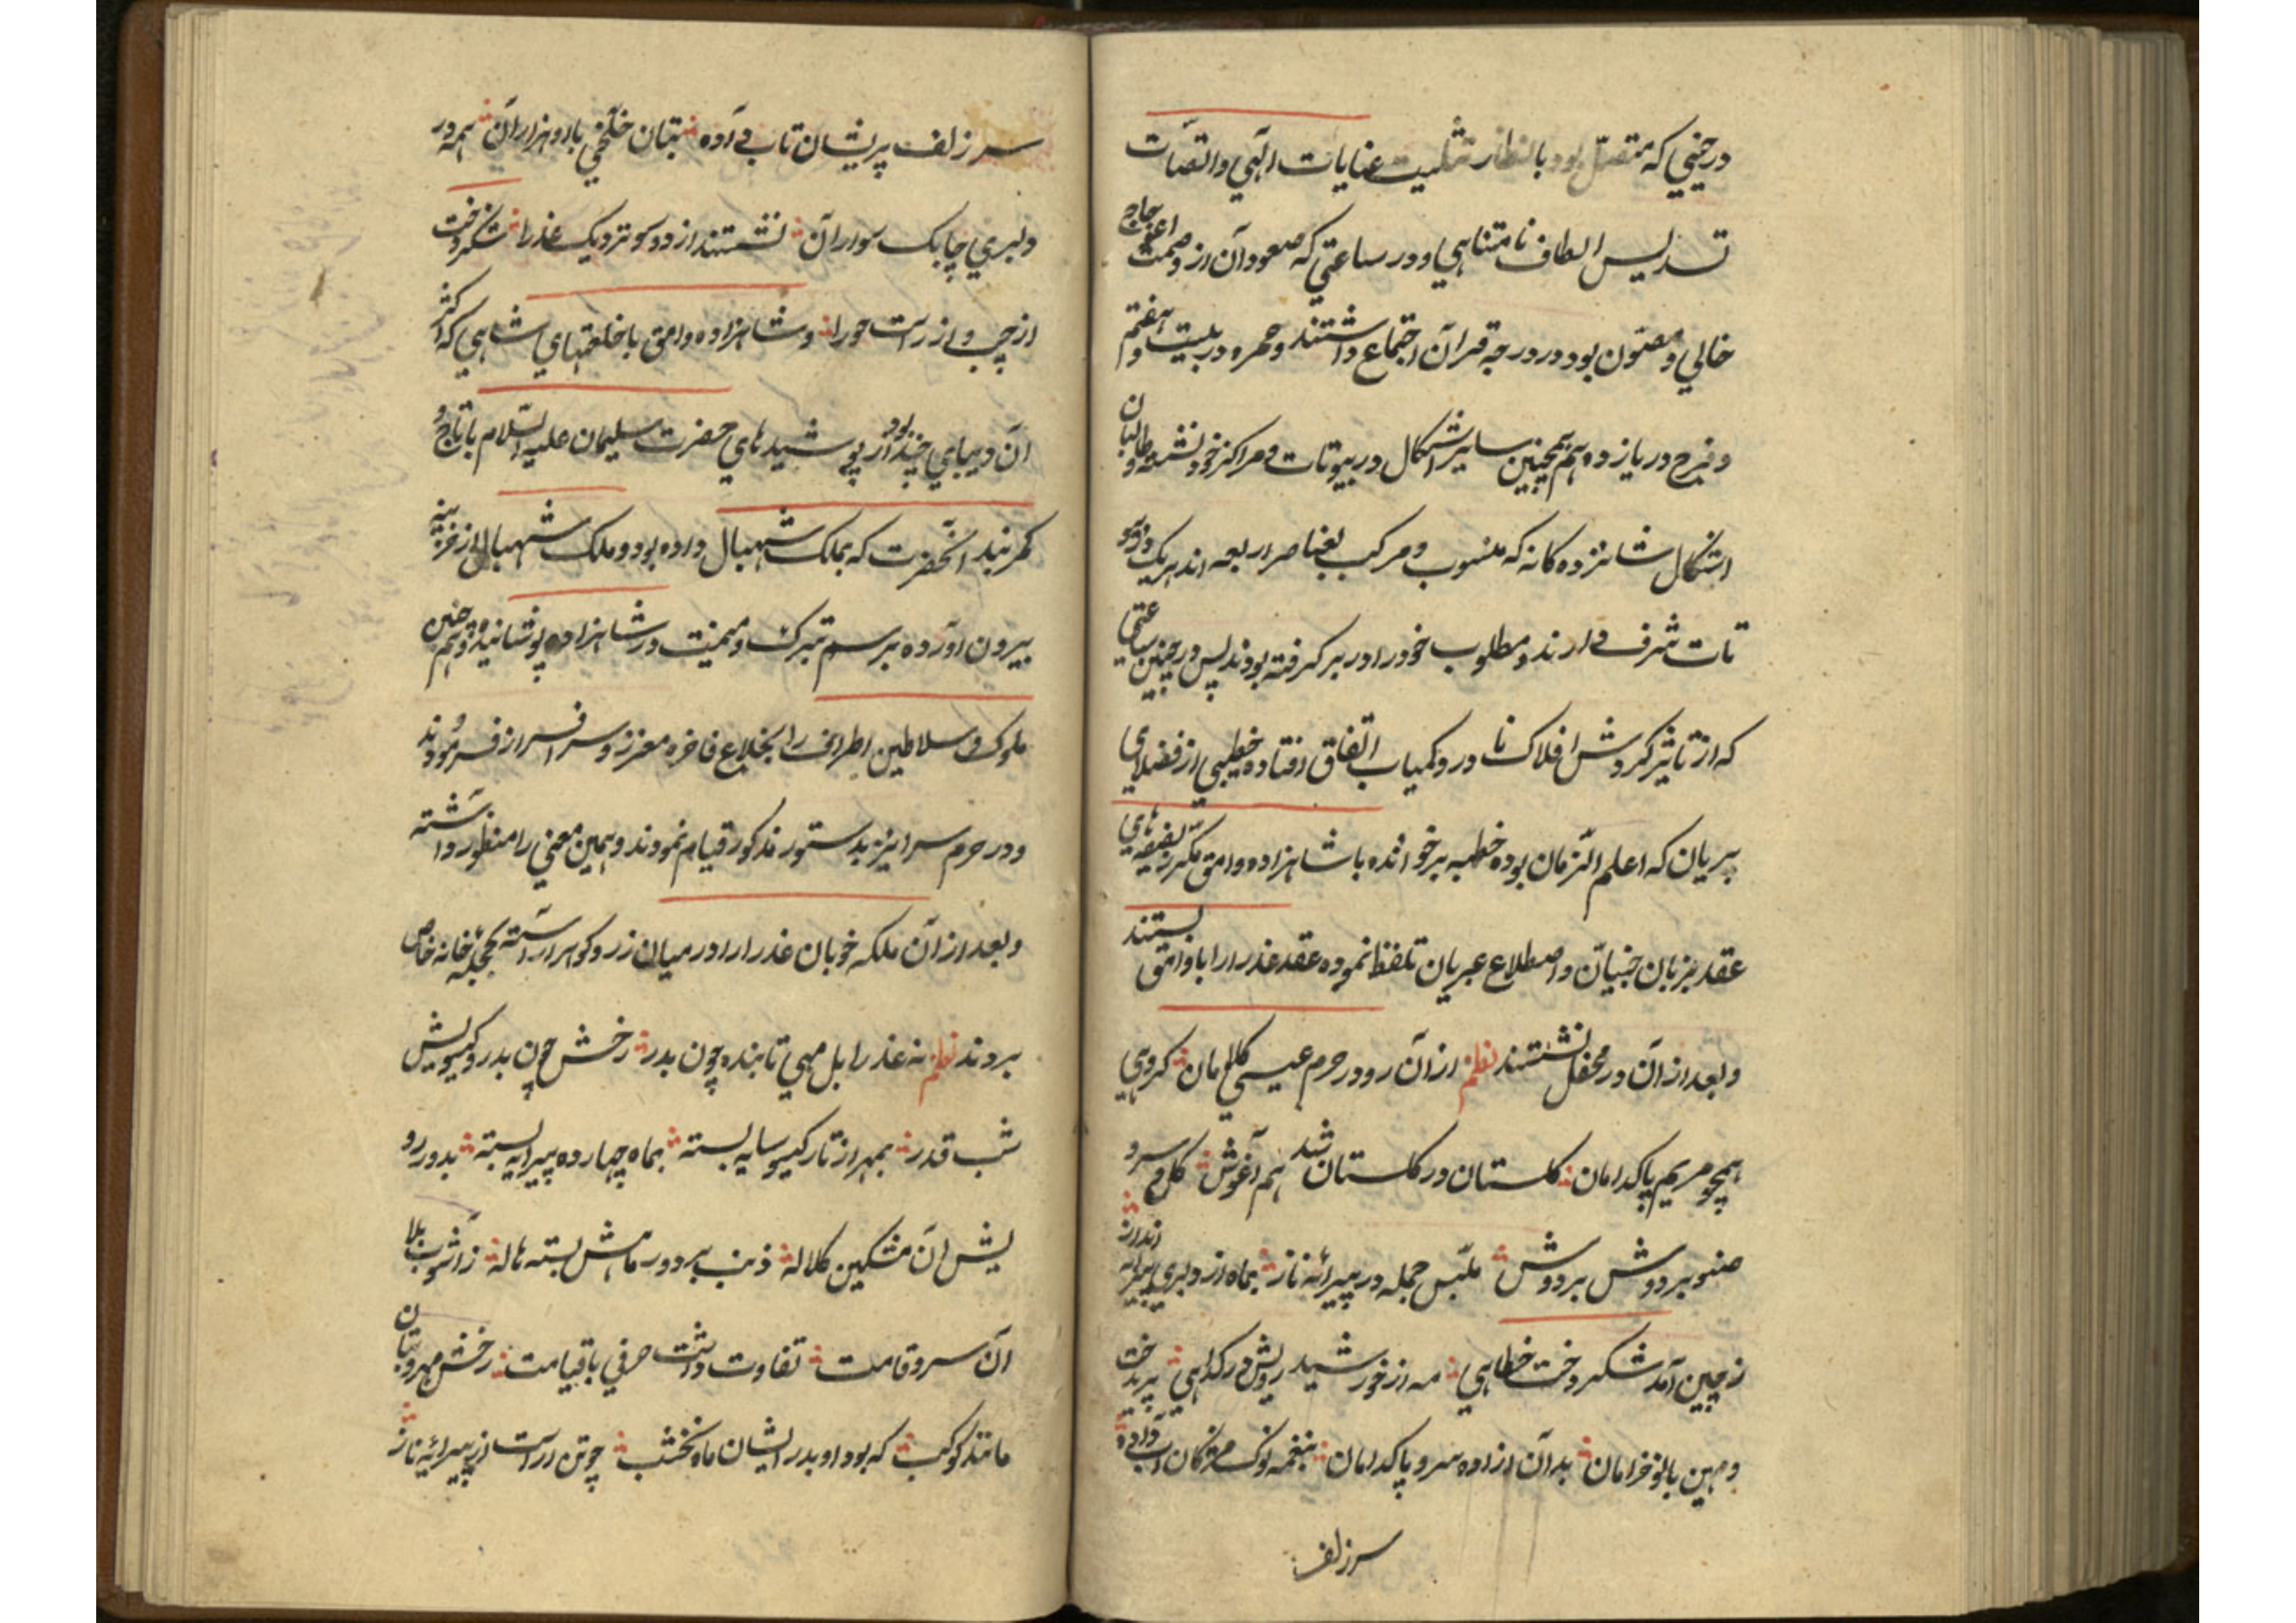 درحینی که متصل بود بانظار تثلیث عنایات الهی و اتصالات
تسدیس الطاف نامتناهی او در ساعتی که صعود آن از وصمت اعوجاج
خالی و مصئون بود در درجه قران اجتماع داشتند و حمره در بیت هفتم
و فرح در یازدهم همچنین سایر اشکال در بیوتات و مراکز خود نشسته و طالبان
اشکال شانزده کانه که منسوب و مرکب بعناصر اربعه اند هریک
شرف دارند و مطلوب خود را در بر کرفته بودند پس در چنین ساعتی
که از تاثیر کردش افلاک نادر و کمیاب اتفاق افتاده خطیبی از فضلای
پریان که اعلم الزمان بوده خطبه برخوانده با شاهزاده وامق
عقد بزبان جنیان و اصطلاع عبریان تلفظ نموده عقد عذرا را با وامق بستند
و بعد از آن در محفل نشستند نظم از آن رو در حرم عیسی کلامان کروهی
همچو مریم پاکدامان کلستان در کلستان شد هم آغوش کل و سرو
صنوبر دوش بر دوش ملبس جمله در پیرائه ناز بماه از دلبری
ز چین آمد شکر وخت خطاهی مه از خورشید رویش در کداهی پریدخت
و مهین بانو خرامان بدان ازاده سرو پاکدامان بنغمه نوک مژکان آب داده
سر زلف
سر زلف پریشان تاب داده بتان خلخی با او هزاران همه در
دلبری چابک سواران نشستند از دو سو نزدیک عذرا شکروخت
از چپ و از راست حورا و شاهزاده وامق با خلعتهای شاهی که اکثر
آن دیبای چند بود از پوشیدهای حضرت سلیمان علیه السلام با تاج و
کمربند آنحضرت که بملک شهبال داده بود و ملک شهبال از خزینه
بیرون اورده برسم تبرک و میمنت در شاهزاده پوشانیده و همچنین
ملوک و سلاطین اطراف را بخلاع فاخره معزز و سرافراز فرمودند
و در حرم سرا نیز بدستور مذکور قیام نمودند و همین معنی را منظور داشته
و بعد از آن ملکه خوبان عذرا را در میان زر و کوهر آراسته بحجله خانه خاص
بردند نظم نه عذرا بل مهی تابنده چون بدر رخش چون بدر و کیسویش
شب قدر بمهر از تار کیسو سایه بسته بماه چهارده پیرایه بسته بدور رو
یش آن مشکین کلاله ذنب بر دور ماهش بسته هاله ز آشوب بلا
آن سرو قامت تفاوت داشت حرفی با قیامت رخش مهر و بتان
مانند کوکب که بود او بدر ایشان ماه نخشب چو تن آراست از پیرائه ناز